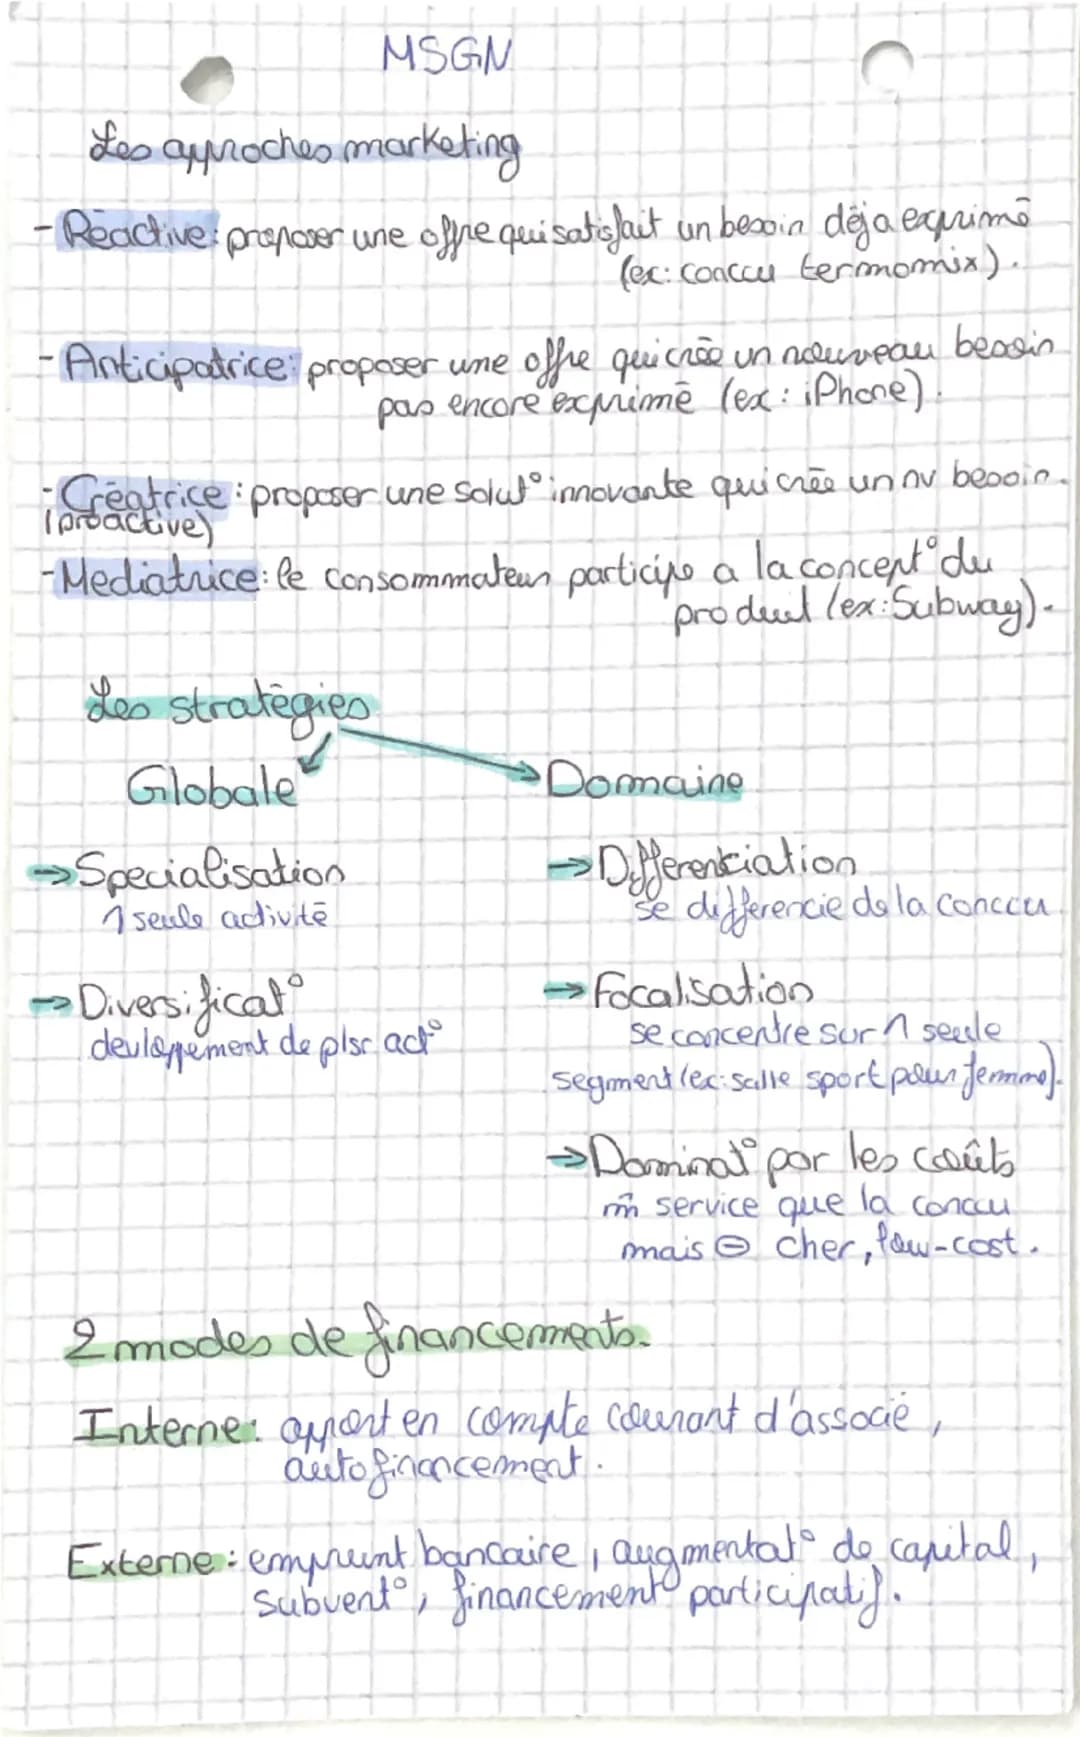 MSGN
Les approches marketing
- Réactive: proposer une offre qui satisfait un besoin déja exprimé
(ex: conccu termomix).
- Anticipatrice: proposer une offre qui crée un nouveau besoin
pas encore exprimé (ex: iPhone).
- Créatrice: proposer une solut° innovante qui crée un nv besoin.
(proactive)
- Mediatrice: le consommateur participe a la concept° du
produit (ex: Subway).
Les stratégies
Globale
Domaine
→ Specialisation
1 seule activité
→ Differenciation
se differencie de la conccu
→ Diversificat°
devloppement de plsr act°
→ Focalisation
se concentre sur 1 seule
segment (ex: salle sport pour femme).
→ Dominat° par les coûts
m̂ service que la conccu
mais ⊖ cher, low-cost.
2 modes de financements.
Interne: apport en compte courant d'associé,
autofinancement.
Externe: emprunt bancaire, augmentat° de capital,
subvent°, financement participatif.